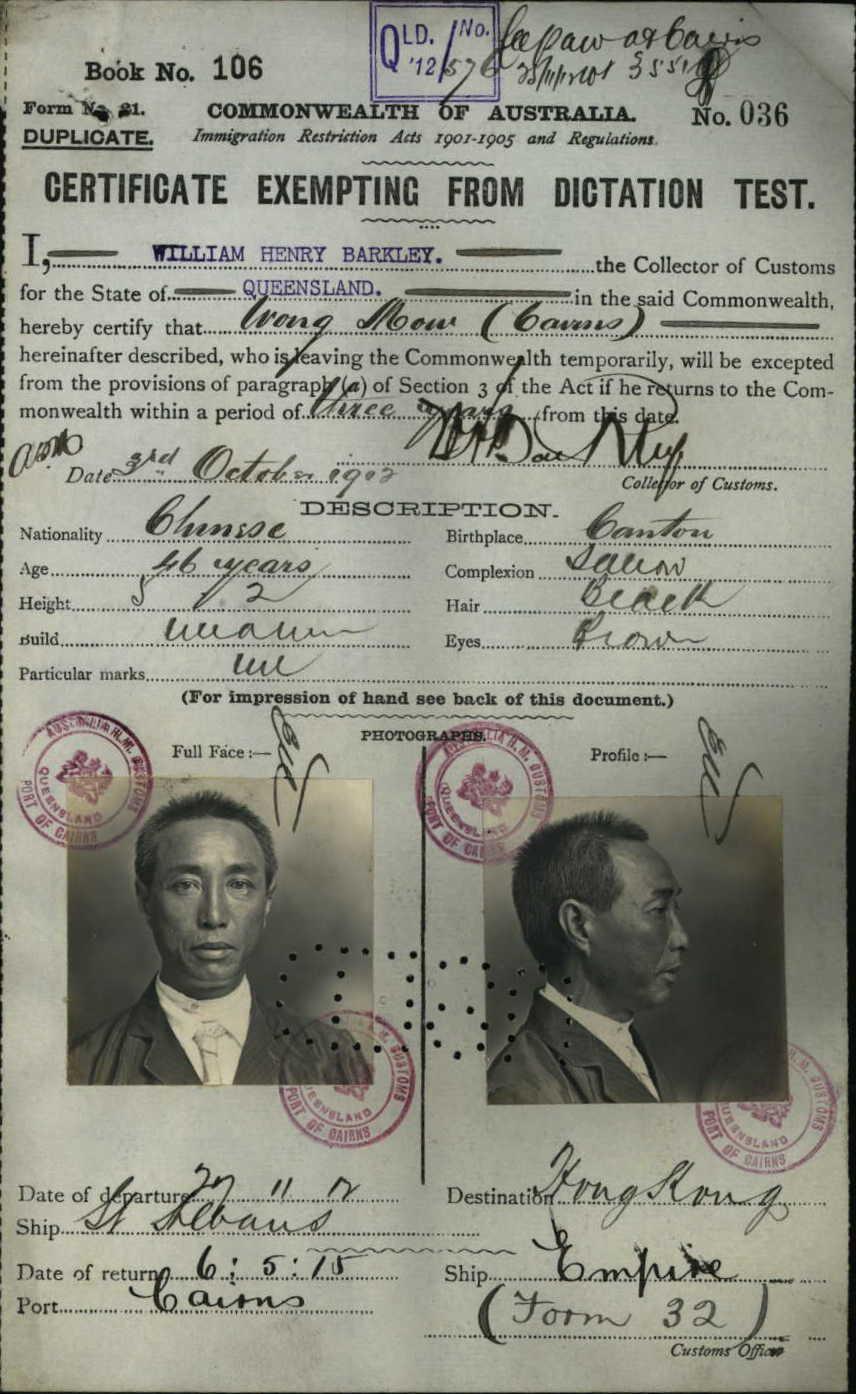 QLD. / No.
'12 / 576
Book No. 106
Form No. 21.
COMMONWEALTH OF AUSTRALIA.
No. 036
DUPLICATE.
Immigration Restriction Acts 1901-1905 and Regulations.
CERTIFICATE EXEMPTING FROM DICTATION TEST.
I, WILLIAM HENRY BARKLEY. the Collector of Customs
for the State of QUEENSLAND. in the said Commonwealth,
hereby certify that Wong Mow (Cairns)
hereinafter described, who is leaving the Commonwealth temporarily, will be excepted
from the provisions of paragraph (a) of Section 3 of the Act if he returns to the Com-
monwealth within a period of three years from this date.
Date 3rd October 1912
Collector of Customs.
DESCRIPTION.
Nationality Chinese
Birthplace Canton
Age 46 years
Complexion Sallow
Height 5' 2
Hair Black
Build Medium
Eyes Brown
Particular marks Nil
(For impression of hand see back of this document.)
PHOTOGRAPHS.
Full Face :—
Profile :—
AUSTRALIA H.M. CUSTOMS
QUEENSLAND
PORT OF CAIRNS
AUSTRALIA H.M. CUSTOMS
QUEENSLAND
PORT OF CAIRNS
H.M. CUSTOMS
QUEENSLAND
PORT OF CAIRNS
H.M. CUSTOMS
QUEENSLAND
PORT OF CAIRNS
Date of departure 27 11 12
Destination Hong Kong
Ship St Albans
Date of return 6 : 5 : 15
Ship Empire
Port Cairns
(Form 32)
Customs Officer